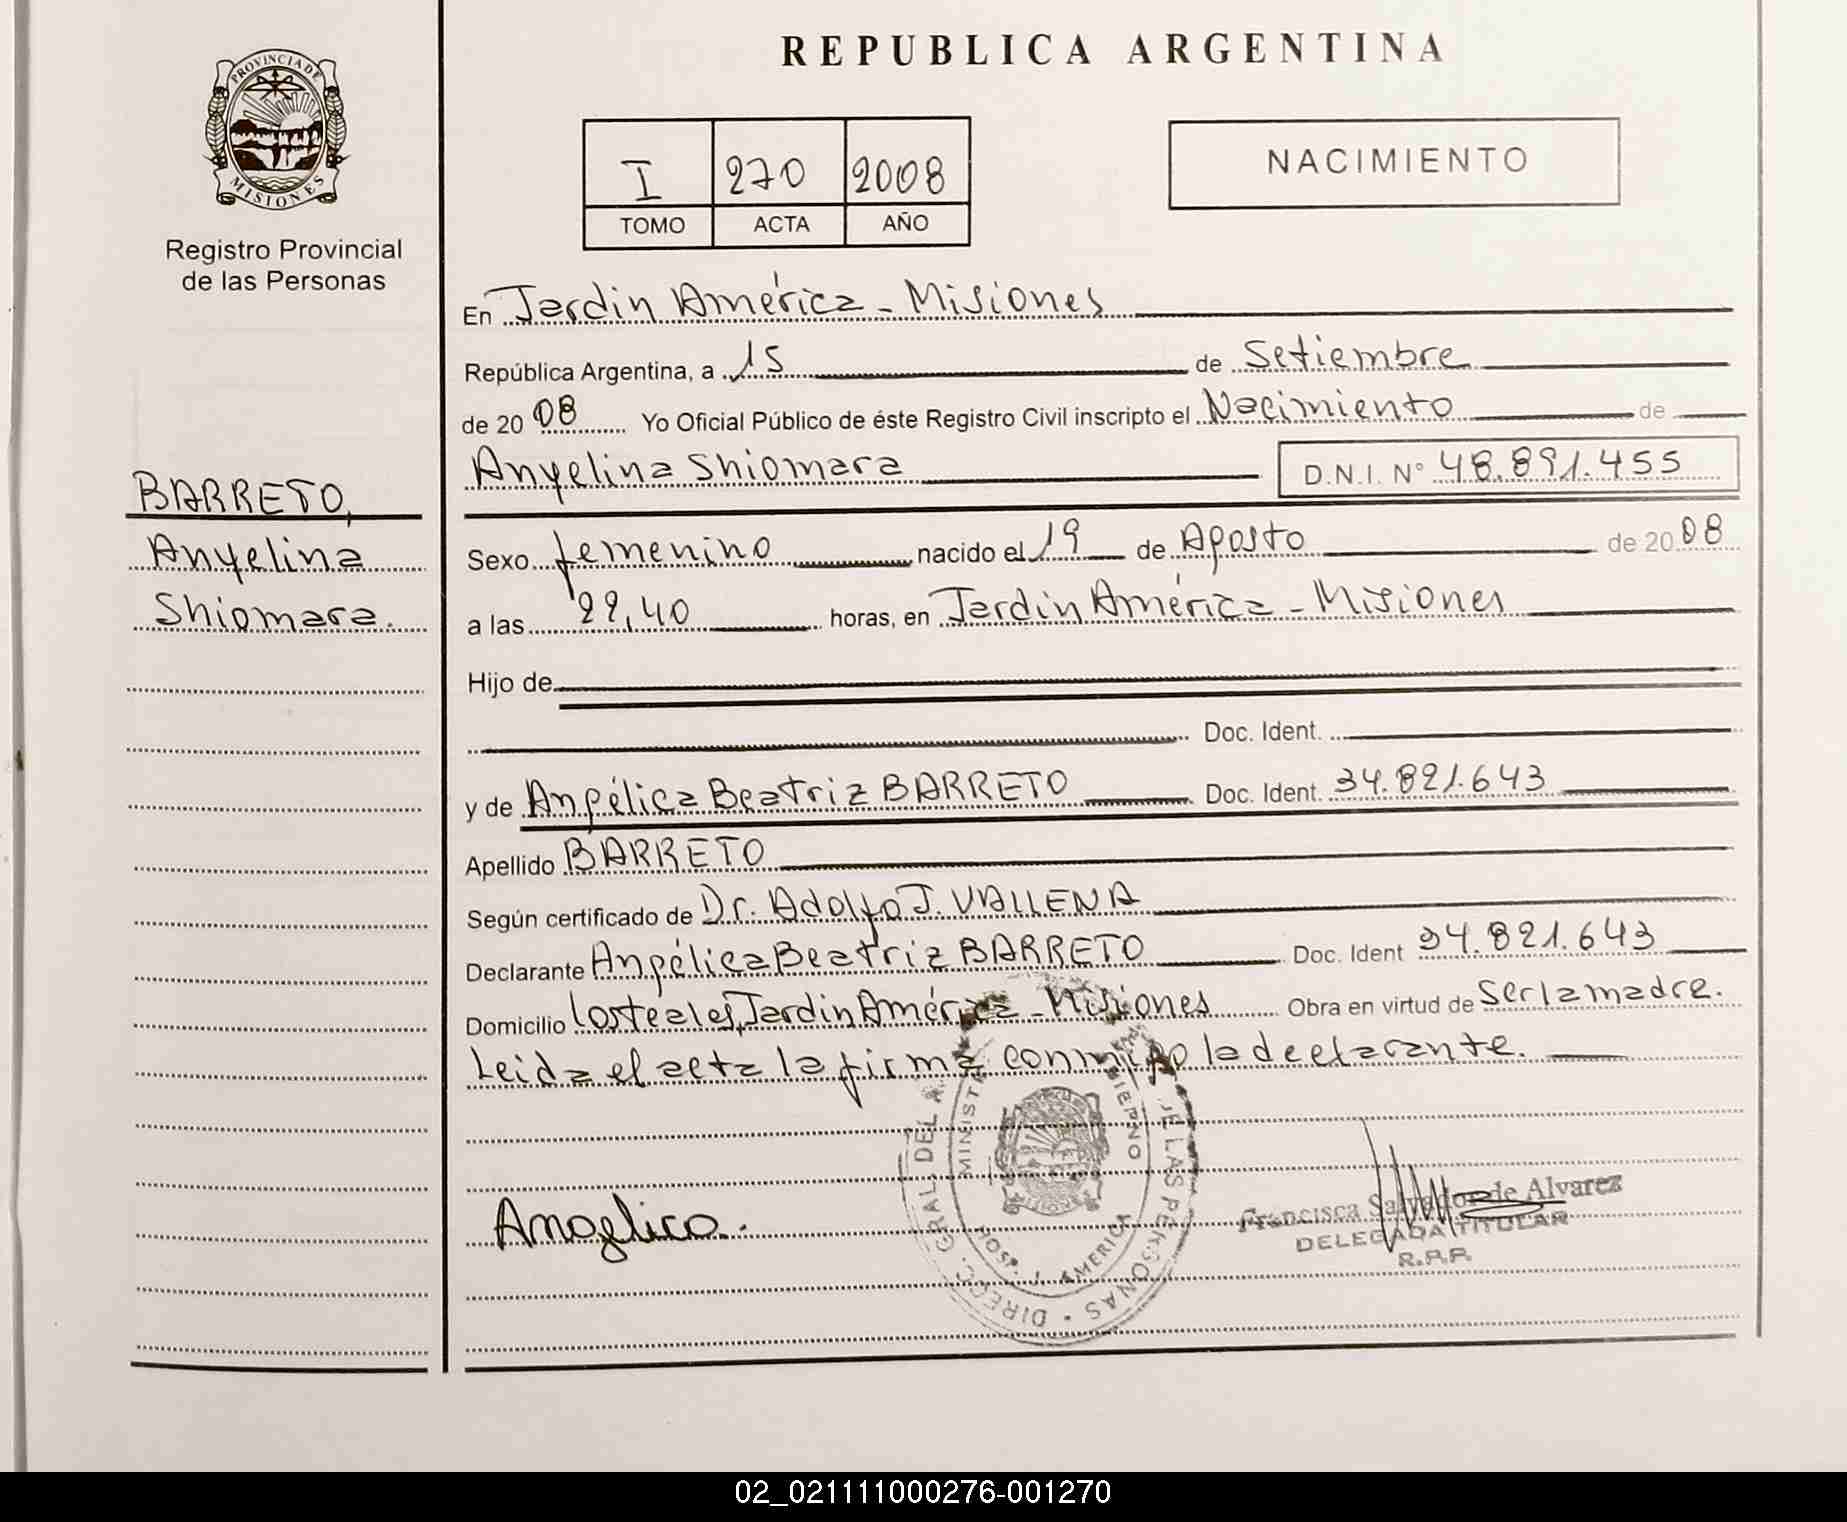 REPUBLICA ARGENTINA
PROVINCIA DE
MISIONES
Registro Provincial
de las Personas
I 270 2008
TOMO ACTA AÑO
NACIMIENTO
En Jardin América - Misiones
República Argentina, a 15 de Setiembre
de 2008 Yo Oficial Público de éste Registro Civil inscripto el Nacimiento de
Anyelina Shiomara D.N.I. Nº 48.891.455
BARRETO,
Anyelina
Shiomara.
Sexo femenino nacido el 19 de Agosto de 2008
a las 22,40 horas, en Jardin América - Misiones
Hijo de
Doc. Ident.
y de Angélica Beatriz BARRETO Doc. Ident. 34.821.643
Apellido BARRETO
Según certificado de Dr. Adolfo J. VALLENA
Declarante Angélica Beatriz BARRETO Doc. Ident 34.821.643
Domicilio los teales, Jardin América - Misiones Obra en virtud de Ser la madre.
Leida el acta la firma conmigo la declarante.
DIREC. GRAL. DEL DE LAS PERSONAS
HOSP. J. AMERICA
Angelica.
Francisca Salvador de Alvarez
DELEGADA TITULAR
R.P.P.
02_021111000276-001270